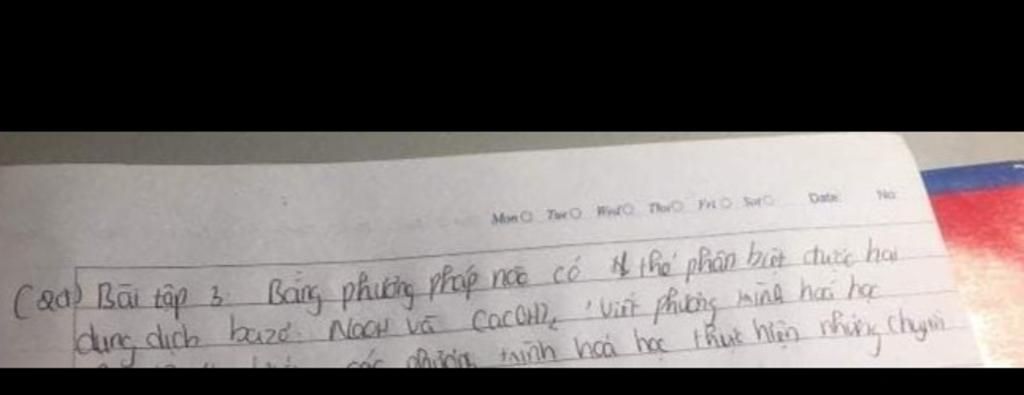 Mon Tue Wed Thu Fri Sat Date No
Bài tập 3. Bằng phương pháp nào có thể phân biệt được hai
dung dịch bazơ. NaOH và Ca(OH)2 Viết phương trình hoá học
các phương trình hoá học thực hiện những chuyển